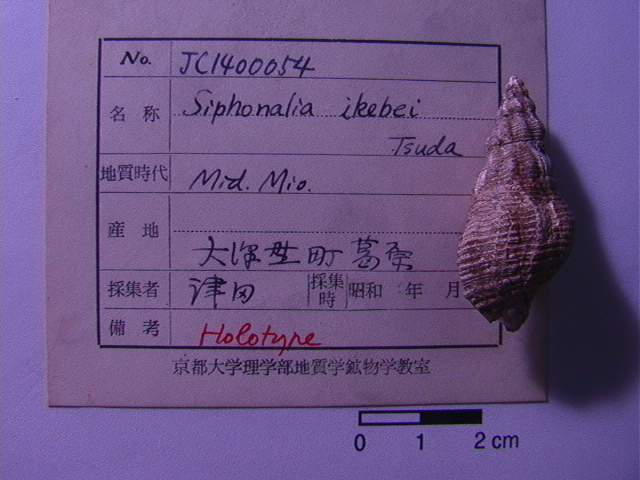 No. JC1400054
名称 Siphonalia ikebei
Tsuda
地質時代 Mid. Mio.
産地
大沢野町葛原
採集者 津田 採集時 昭和 年 月
備考 Holotype
京都大学理学部地質学鉱物学教室
0 1 2 cm